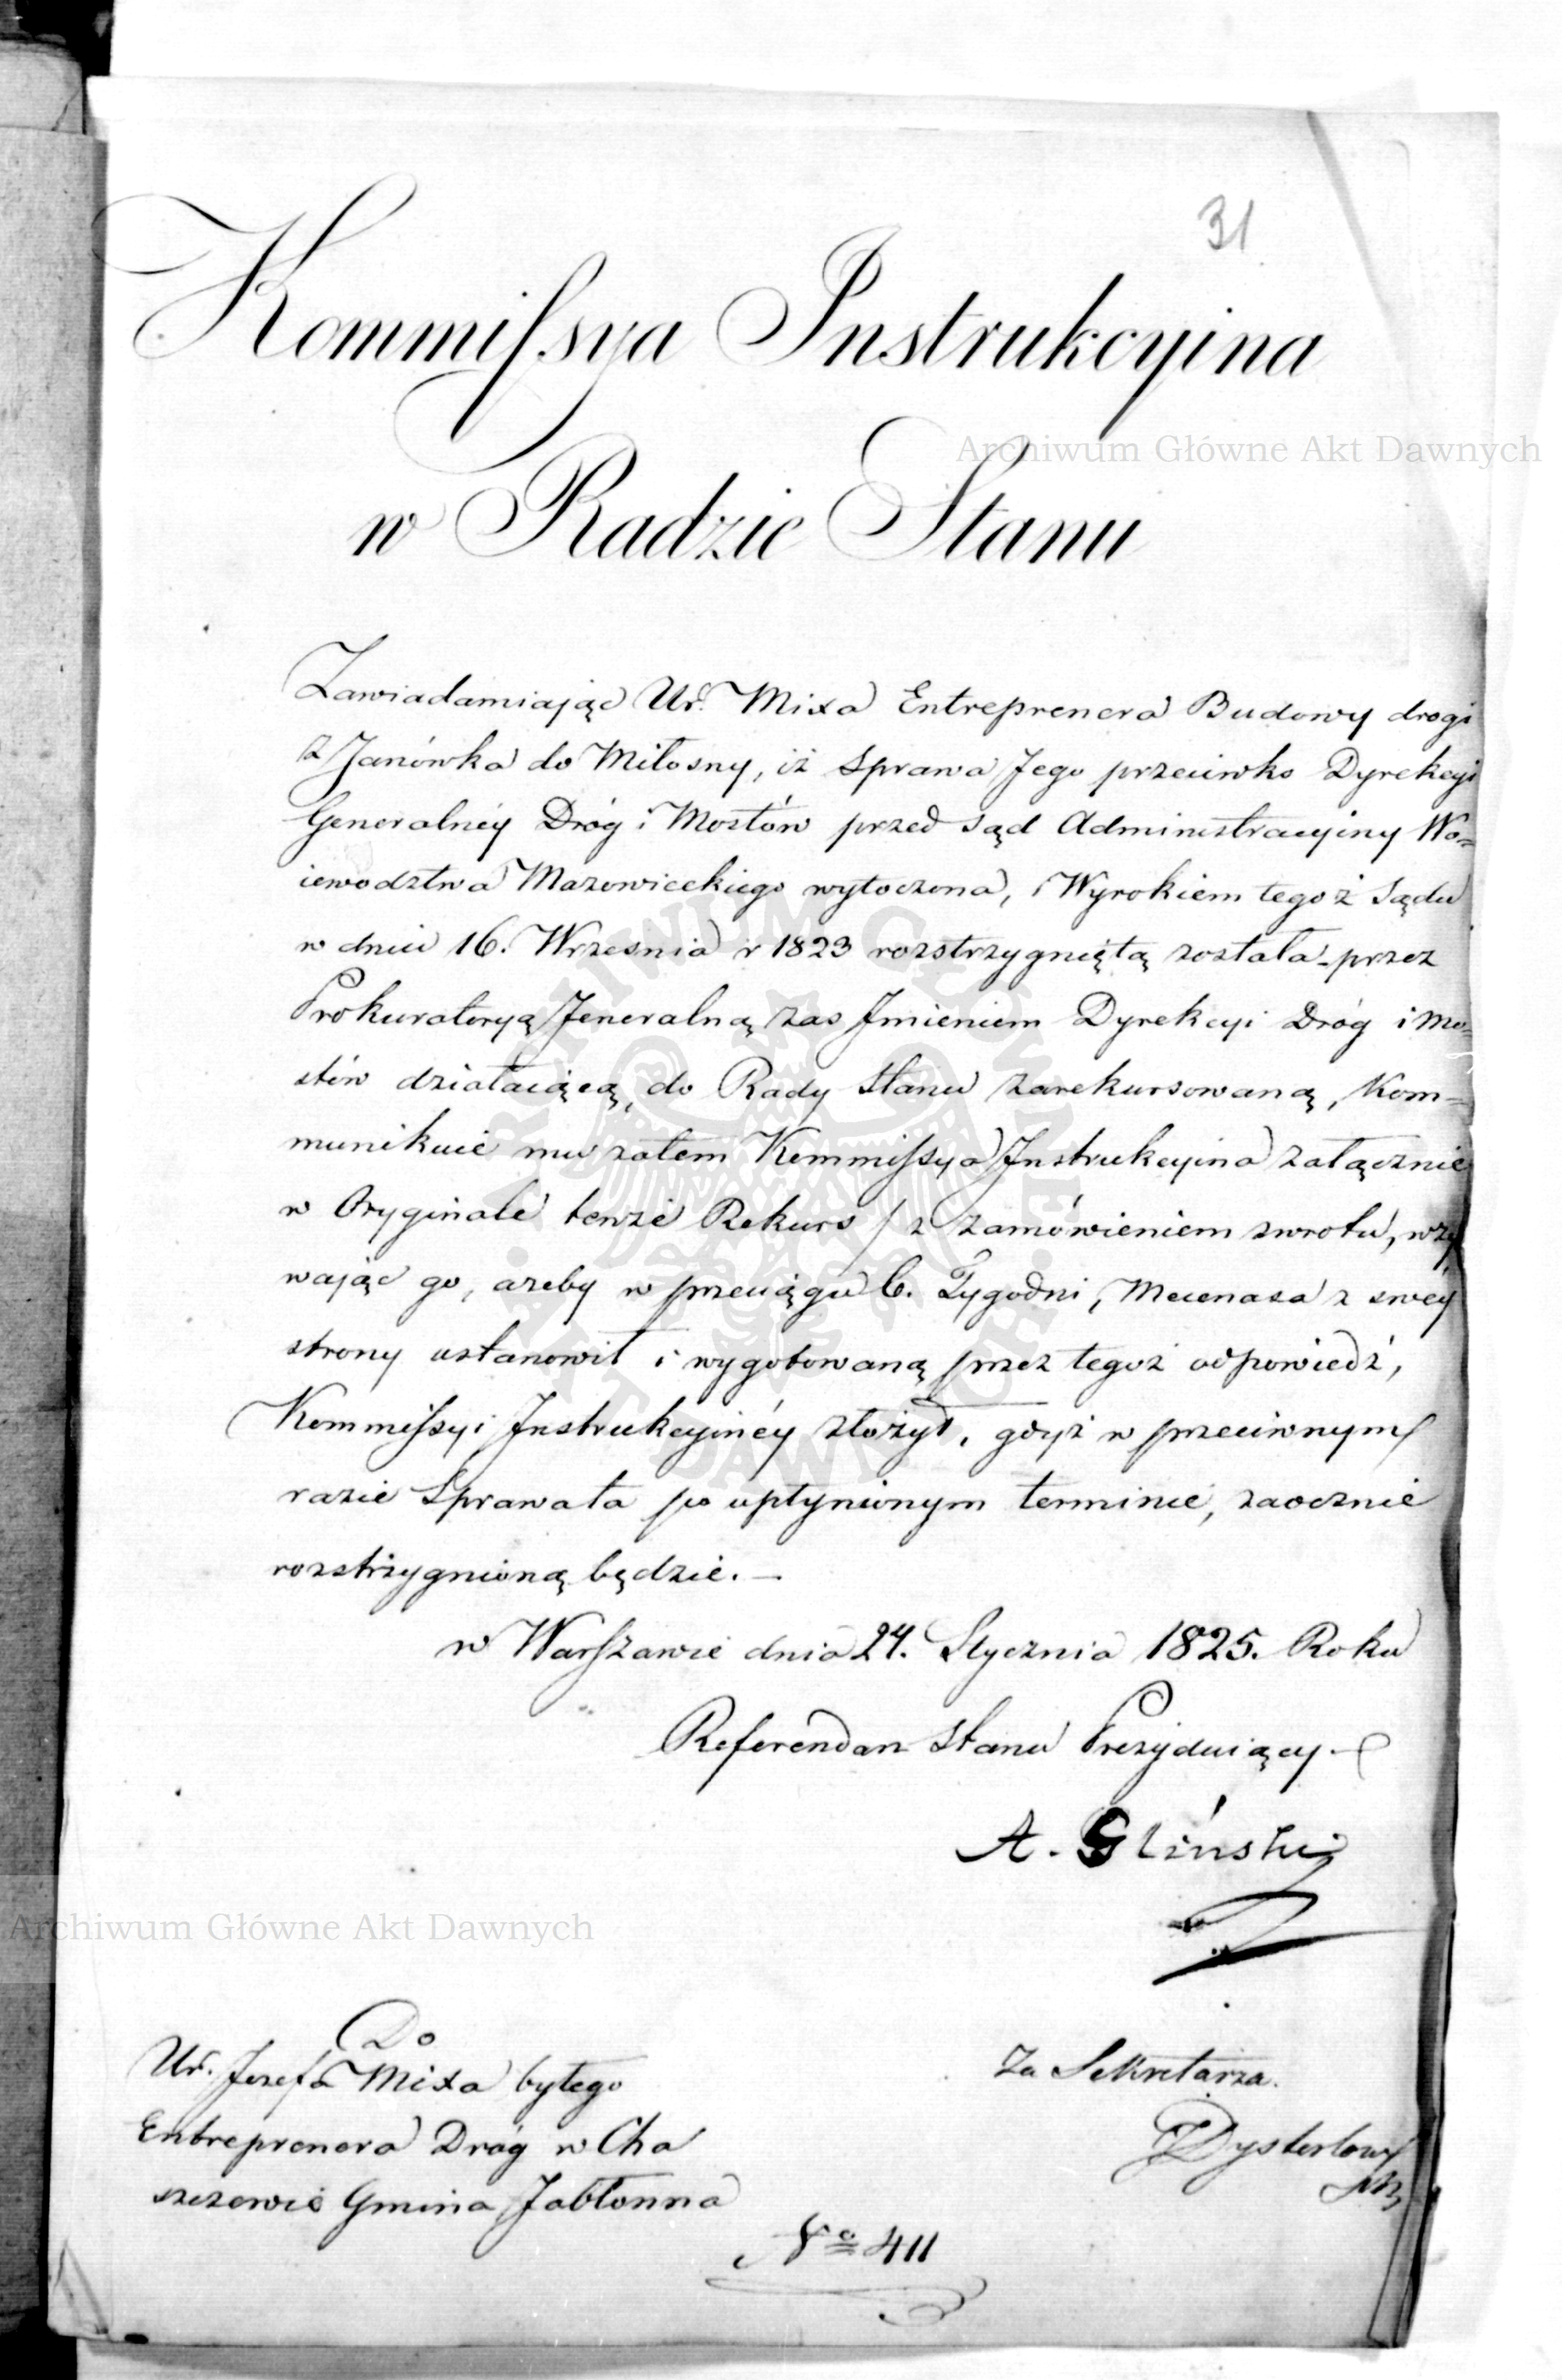 31
Kommissya Instrukcyina
Archiwum Główne Akt Dawnych
w Radzie Stanu
Zawiadamiając Ur. Mixa Entreprenera Budowy drogi
z Janówka do Miłosny, iż Sprawa Jego przeciwko Dyrekcyi
Generalnéy Dróg i Mostów przed Sąd Administracyiny Wo=
iewodztwa Mazowieckiego wytoczona, i Wyrokiem tegoż Sądu
w dniu 16. Wrzesnia r 1823 rozstrzygniętą została przez
Prokuratoryą Jeneralną zas Jmieniem Dyrekcyi Dróg i Mo=
stów działaiącą, do Rady Stanu zarekursowaną, Kom=
munikuie mu zatem Kommissya Instrukcyina załącznie
w Oryginale tenże Rekurs / z zamówieniem zwrotu, wzy
wając go, ażeby w przeciągu 6. Tygodni, Mecenasa z swéy
strony ustanowił i wygotowaną przez tegoż odpowiedź,
Kommissyi Instrukcyinéy złożył, gdyż w przeciwnym
razie Sprawa ta po upłynionym terminie, zaocznie
rozstrzygnioną będzie. —
w Warszawie dnia 24. Stycznia 1825. Roku
Referendarz Stanu Prezyduiący
A. Gliński
Archiwum Główne Akt Dawnych
Do
Ur. Jozefa Mixa byłego
Entreprenera Dróg w Cho
szczowie Gmina Jabłonna
Za Sekretarza.
No 411